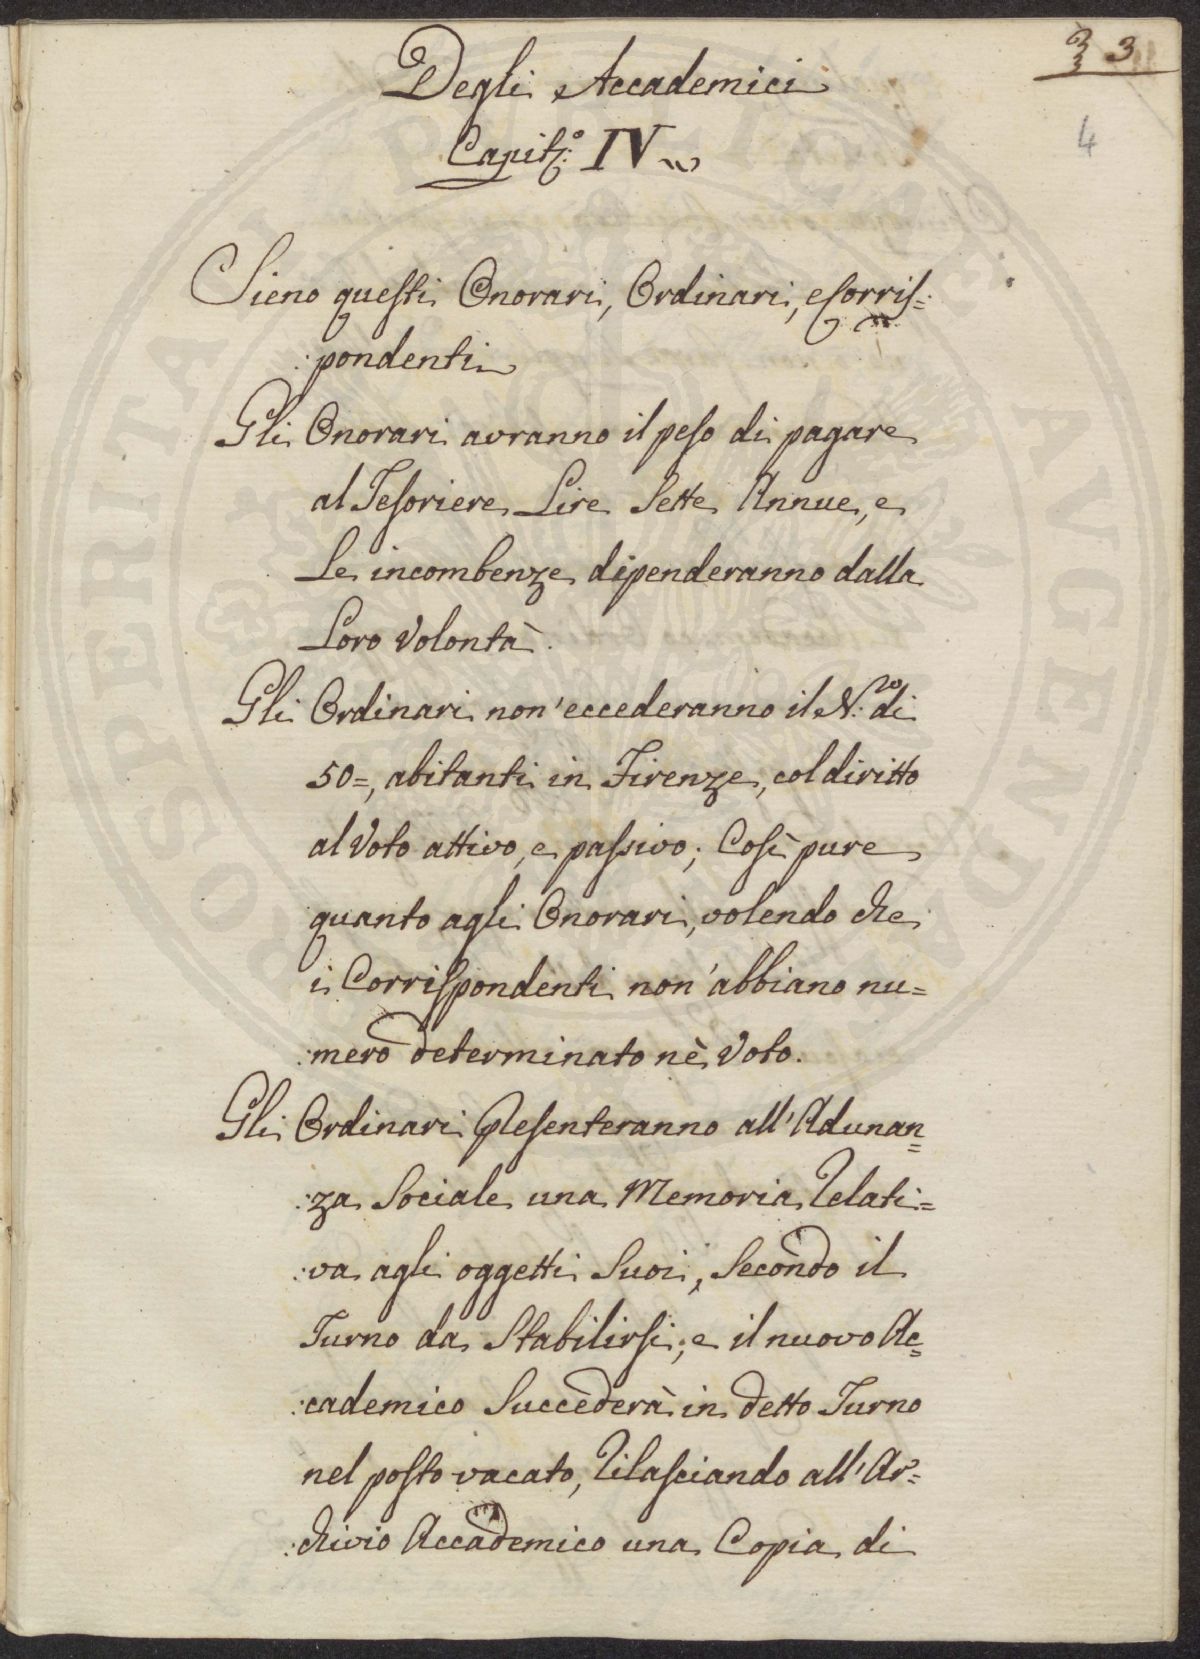 3
4
Degli Accademici
Capit.º IV
Sieno questi Onorari, Ordinari, e Corris=
:pondenti
Gli Onorari avranno il peso di pagare
al Tesoriere Lire Sette Annue, e
Le incombenze dipenderanno dalla
Loro Volontà.
Gli Ordinari non' eccederanno il N.ro di
50=, abitanti in Firenze, col diritto
al Voto attivo, e passivo; Così pure
quanto agli Onorari, volendo che
i Corrispondenti non' abbiano nu=
:mero determinato nè Voto.
Gli Ordinari Presenteranno all'Adunan=
:za Sociale una Memoria Relati=
:va agli oggetti Suoi, Secondo il
Turno da Stabilirsi; e il nuovo Ac=
:cademico Succederà in detto Turno
nel posto vacato, Rilasciando all'Ar=
:chivio Accademico una Copia di
PROSPERITATI PUBLICAE AUGENDAE